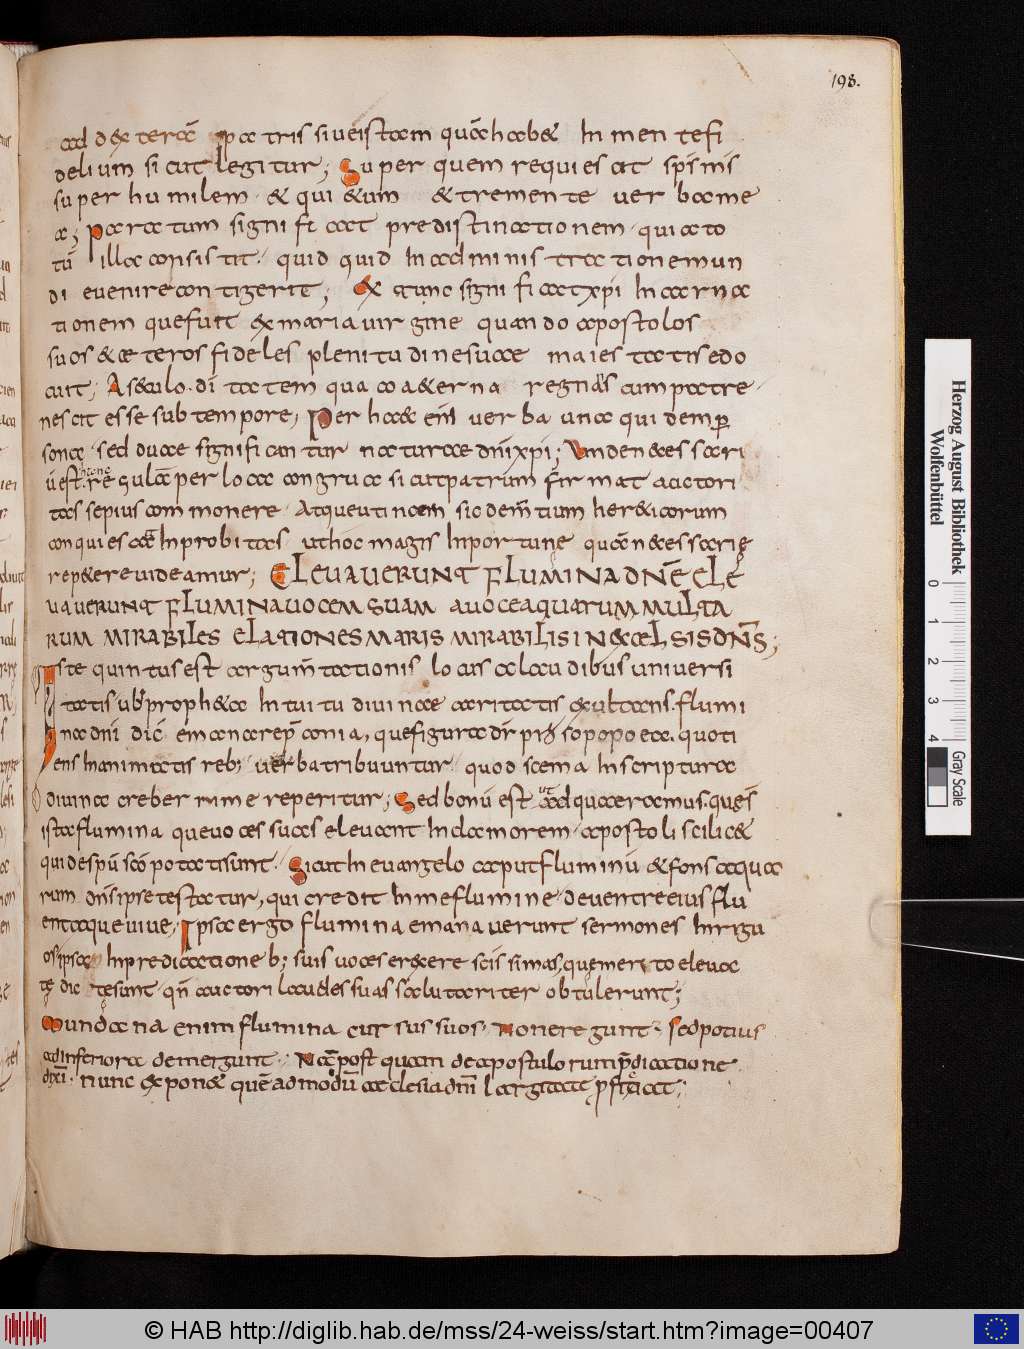 198.
ad dexteram patris si ueistam quam habet In men tefi
delium sicut legitur; Super quem requiescit sps mis
super humilem · & qui &um &tremente uer bame
a; paratum significat predistinationem · qui a to
tū illa consistit · quid quid In adminis tra tionemun
di euenire contigerit; Ex tunc significat xpi In carna
tionem que fuit ex maria uirgine quando apostolos
suos & ceteros fideles plenitudine suae maies tatis edo
cuit; A sæculo · di tatem qua a &erna regnans cum patre ·
nescit esse sub tempore; Per haec eni uerba una quidem per
sona · sed duae significantur naturae dni xpi; Unde necessari
ū est hanc regulā per loca congrua sicut patrum firmat auctori
tas sepius commonere · Atque utinam sic demētium hereticorum
conquiescat Inprobitas ut hoc magis Inportune quam necessarię
repetere uideamur; ELEUAUERUNT FLUMINA DNE ELE
UAUERUNT FLUMINA UOCEM SUAM A UOCE AQUARUM MULTA
RUM MIRABILES ELATIONES MARIS MIRABILIS IN EXCELSIS DNS;
Iste quintus est argumtationis locus a laudibus uniuersi
tatis ubi propheta Intuitu diuinae caritatis exultans · flumi
na dni dic emanare p̄conia, que figura dr prosopopoea · quoti
ens Inanimatis reb; uerba tribuuntur · quod scema In scriptura
diuina creberrime reperitur; Sed bonū est ut adquaeramus · quęs
ista flumina que uoces suas eleuant In clamorem · apostoli scilic&
qui de spu sco potati sunt · Sicut In euangelo caput fluminū & fons aqua
rum dns ipse testatur, qui credit In me flumine · de uentre eius flu
ent aque uiue, Ipsa ergo flumina emanauerunt sermones Inrigu
os ipsa Inpredicatione b; suis uoces erexere
tę dic tesunt · qn auctori laudes suas salutariter obtulerunt;
Mundana enim flumina cursus suos · non eregunt · sed potius
ad Inferiora demergunt · Nā post quam de apostulorum p̄dicatione
dixi · nunc exponet quē admodū aeclesia dni largitate p̄ficiat;
Herzog August Bibliothek
Wolfenbüttel
0 1 2 3 4
Gray Scale
© HAB http://diglib.hab.de/mss/24-weiss/start.htm?image=00407